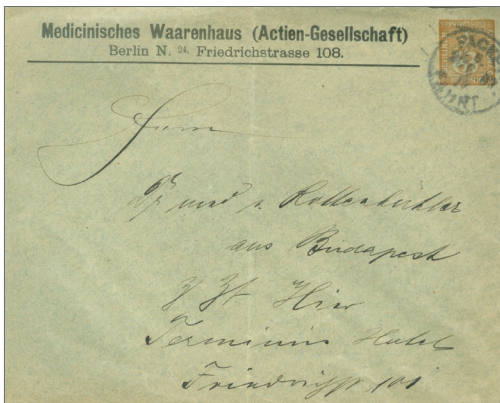 Medicinisches Waarenhaus (Actien-Gesellschaft)
Berlin N. 24. Friedrichstrasse 108.
PACKE
FAHRT
Herrn
Dr med v.
aus Budapest
z Zt Hier
Terminus Hotel
Friedrichstr 101